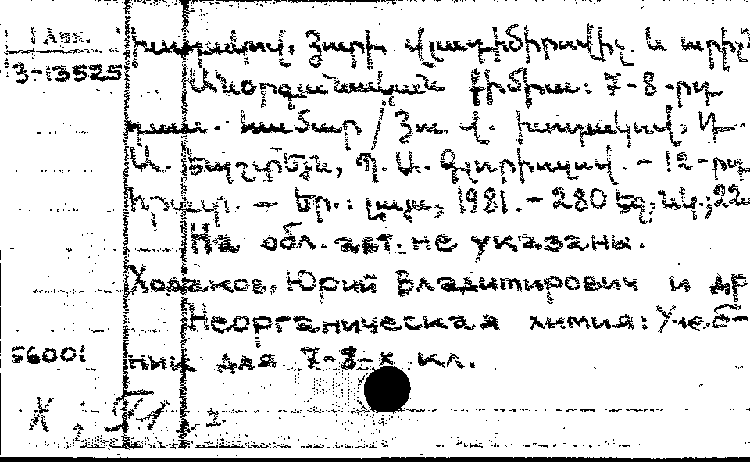 1 Авк.
3-13525
Խոդակով, Յուրի Վլադիմիրովիչ և ուրիշ
Անօրգանական քիմիա: 7-8-րդ
դաս. համար / Յու. Վ. Խոդակով, Դ.
Ա. Եպշտեյն, Պ. Ա. Գլորիոզով. - 12-րդ
հրատ. - Եր.: Լույս, 1981. - 280 էջ, նկ.; 22
На обл. авт. не указаны.
Ходаков, Юрий Владимирович и др
Неорганическая химия: Учеб-
56001 ник для 7-8-х кл.